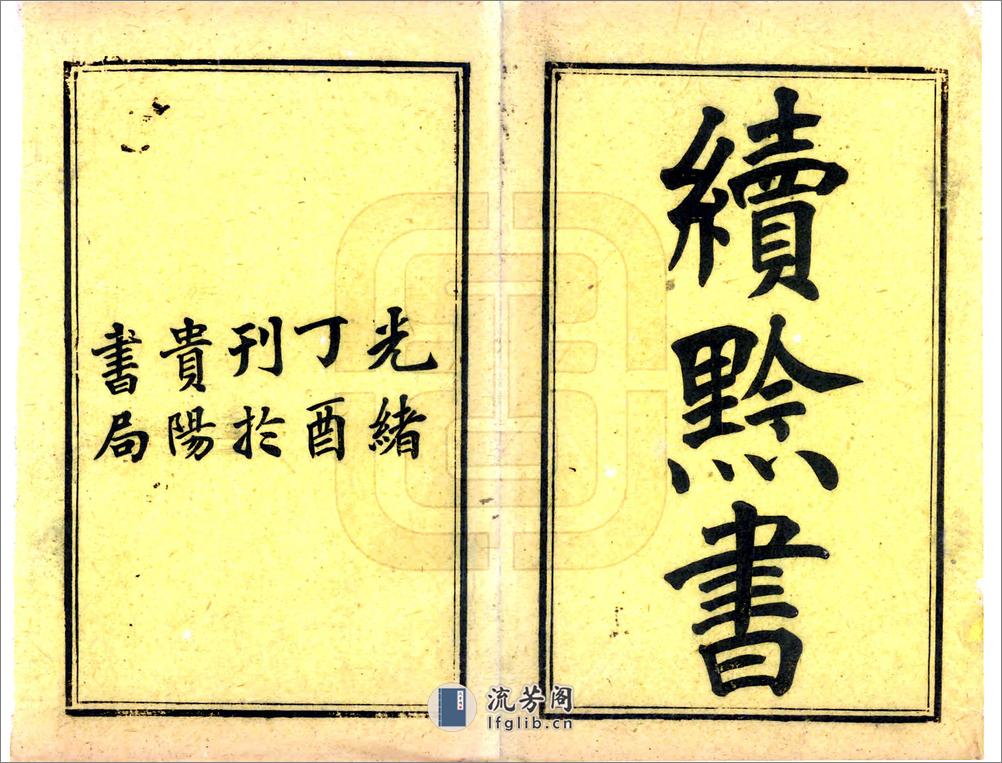 續黔書
光緒
丁酉
刊於
貴陽
書局
流芳阁
lfglib.cn